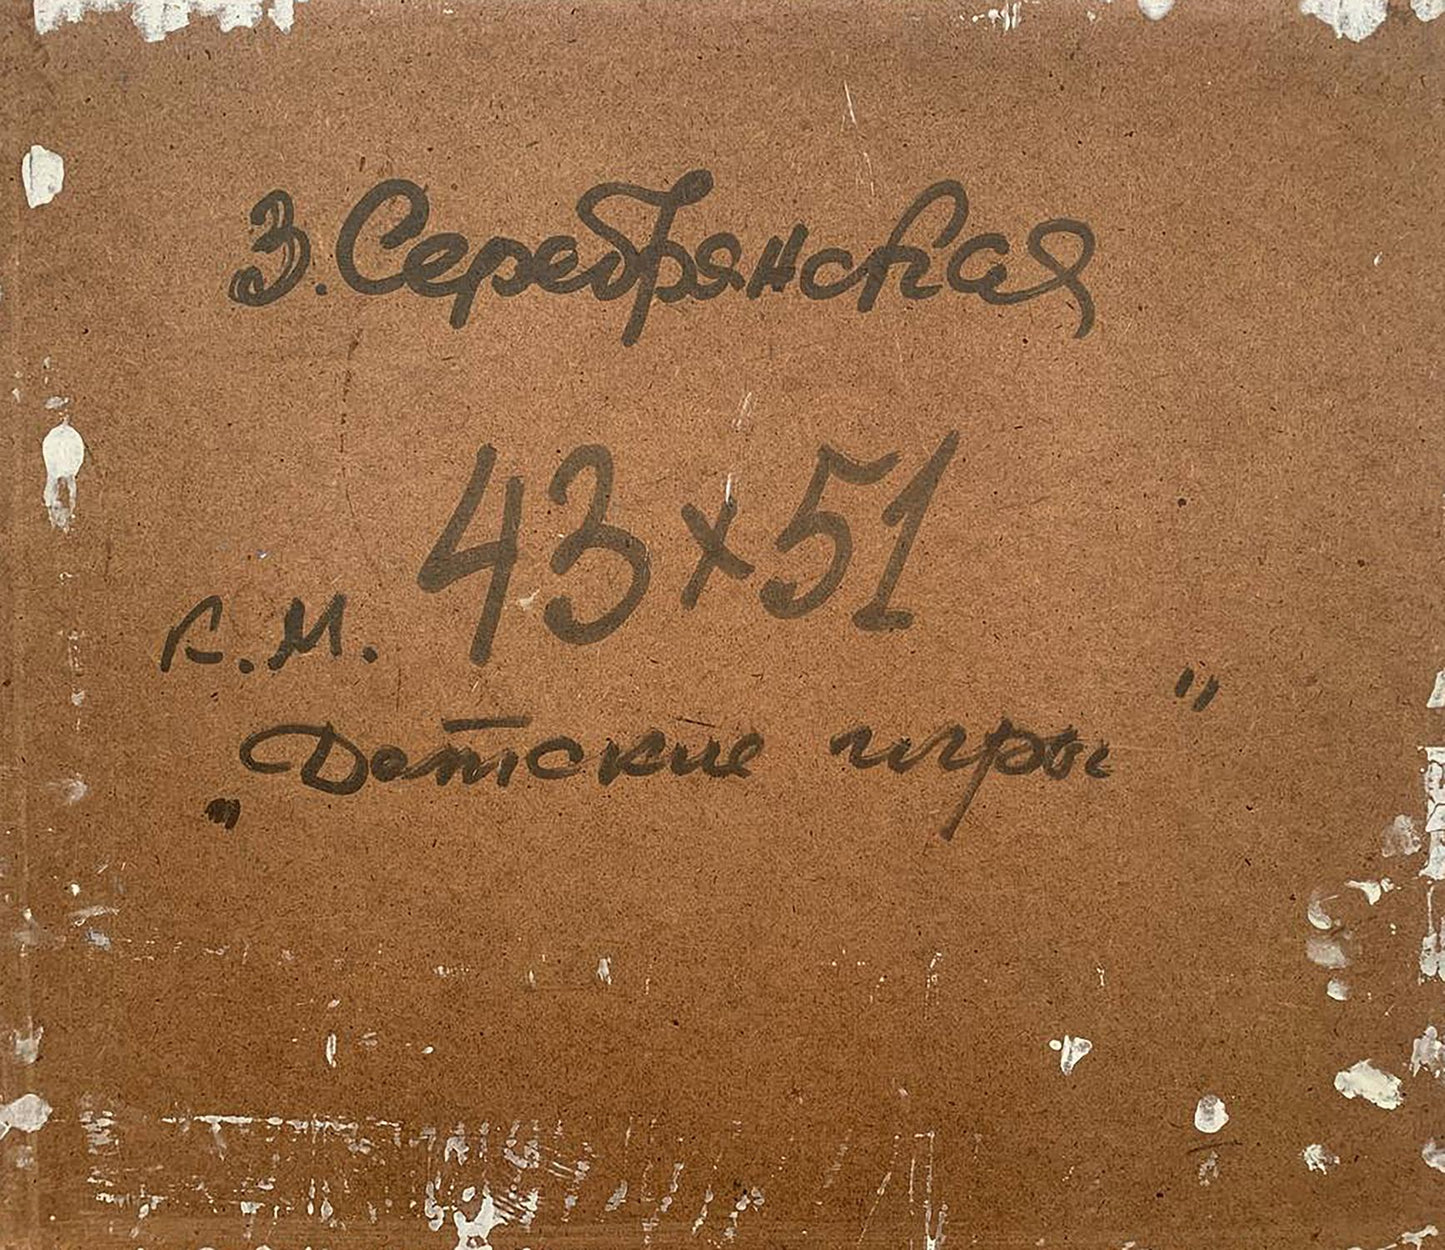 З. Серебрянская
43х51
к.м.
„Детские игры"